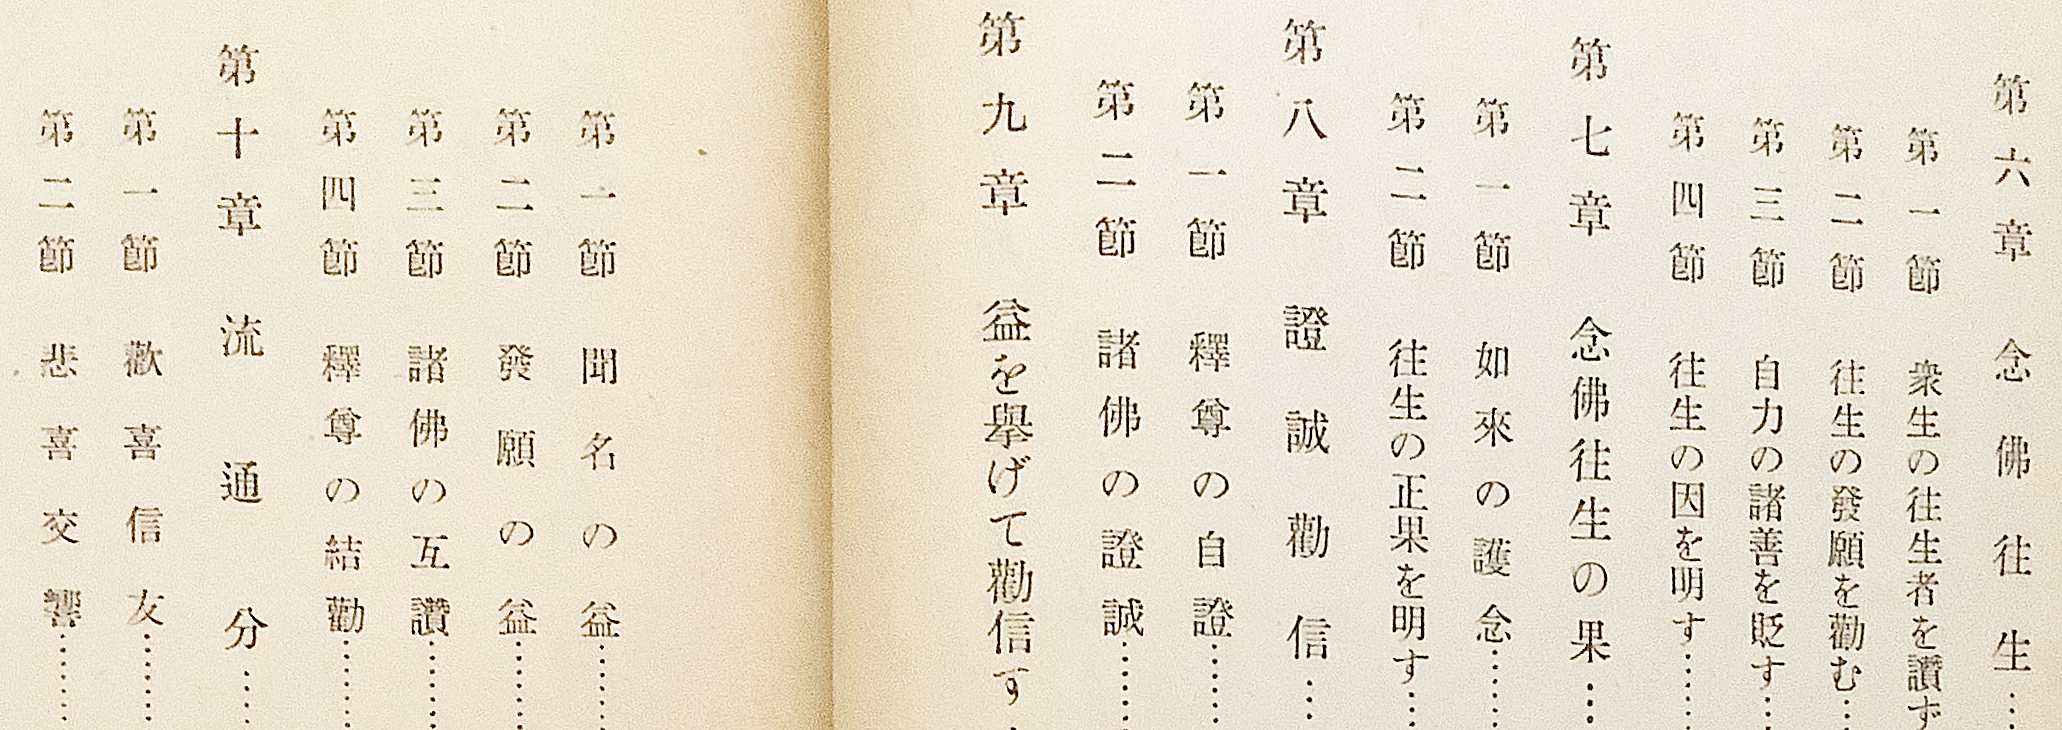 第六章　念佛往生……
第一節　衆生の往生者を讚ず
第二節　往生の發願を勸む……
第三節　自力の諸善を貶す……
第四節　往生の因を明す……
第七章　念佛往生の果……
第一節　如來の護念……
第二節　往生の正果を明す……
第八章　證誠勸信……
第一節　釋尊の自證……
第二節　諸佛の證誠……
第九章　益を擧げて勸信す……
第一節　聞名の益……
第二節　發願の益……
第三節　諸佛の互讚……
第四節　釋尊の結勸……
第十章　流通分……
第一節　歡喜信友……
第二節　悲喜交響……